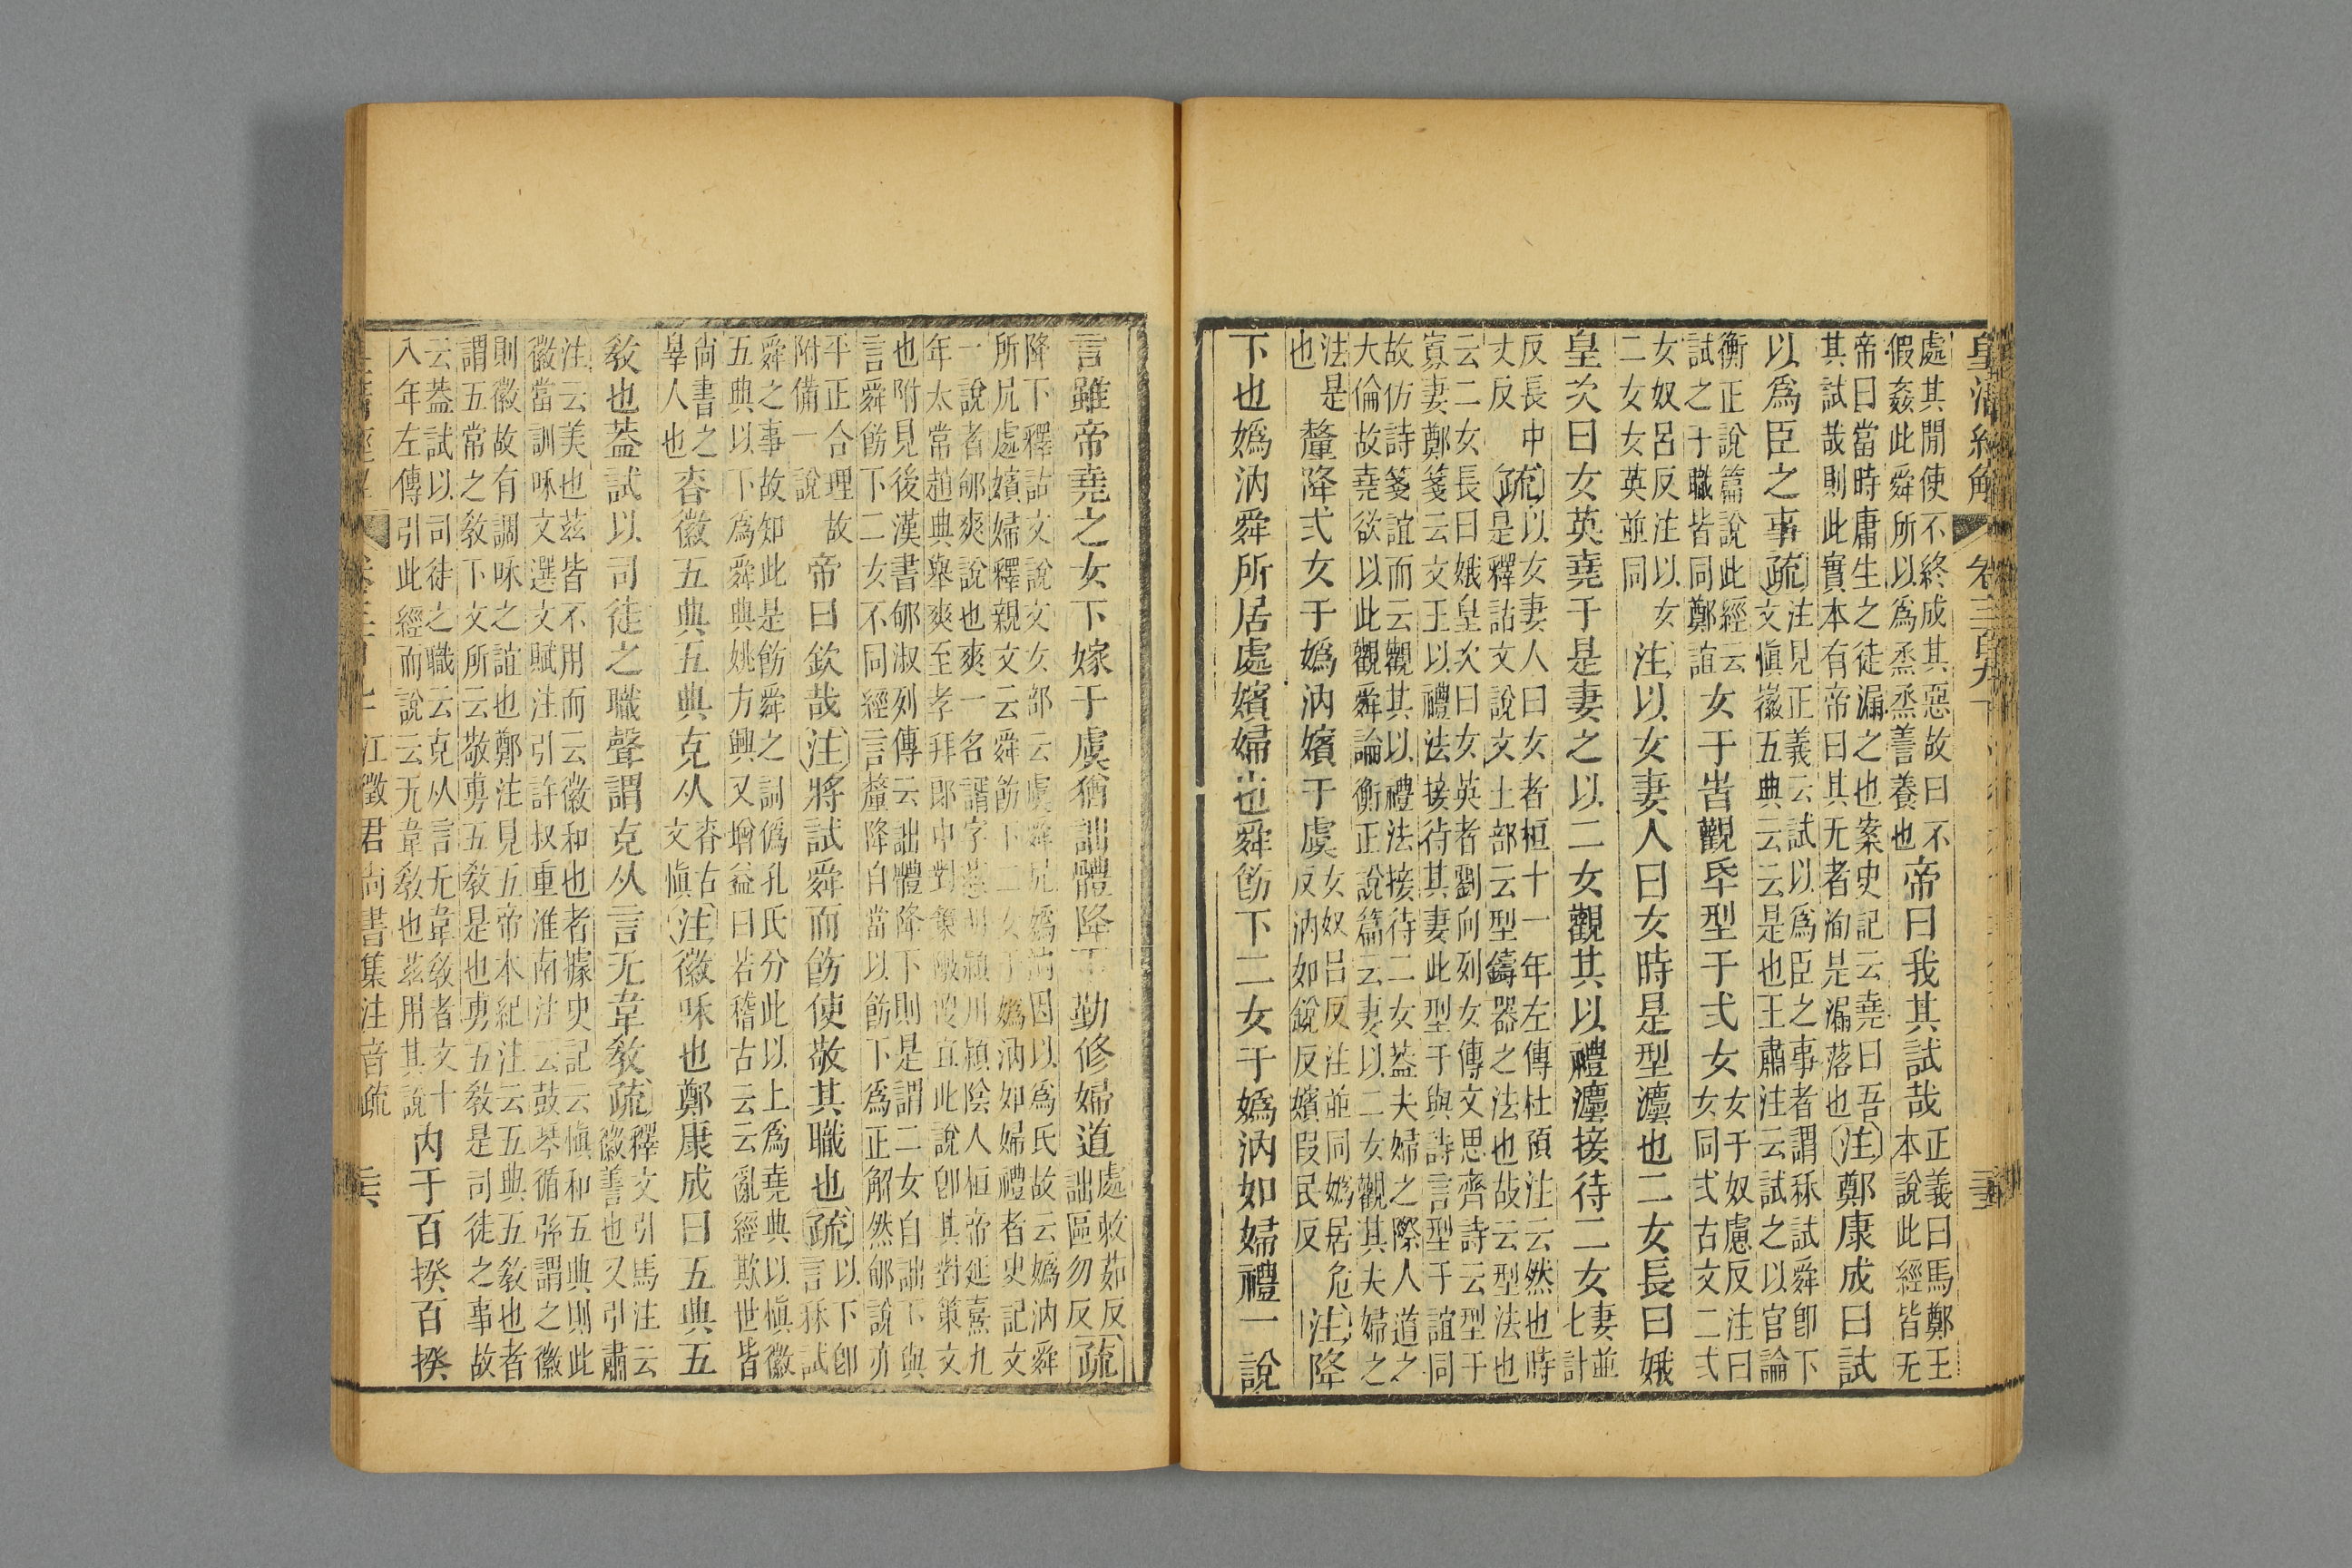 處其閒使不終成其惡故曰不
假姦此舜所以爲烝烝善養也
帝曰我其試哉
正義曰馬鄭王
本說此經皆无
帝曰當時庸生之徒漏之也案史記云堯曰吾
其試哉則此實本有帝曰其无者洵是漏落也
注鄭康成曰試
以爲臣之事疏
注見正義云試以爲臣之事者謂秝試舜卽下
文愼徽五典云云是也王肅注云試之以官論
衡正說篇說此經云
試之于職皆同鄭誼
女于旹觀氒型于弍女
女于奴慮反注曰
女同弍古文二弍
女奴呂反注以女
二女女英並同
注以女妻人曰女時是型灋也二女長曰娥
皇次曰女英堯于是妻之以二女觀其以禮灋接待二女
妻並
七計
反長中
丈反
疏
以女妻人曰女者桓十一年左傳杜預注云然也時
是釋詁文說文土部云型鑄器之法也故云型法也
云二女長曰娥皇次曰女英者劉向列女傳文思齊詩云型于
寡妻鄭箋云文王以禮法接待其妻此型于與詩言型于誼同
故仿詩箋誼而云觀其以禮法接待二女葢夫婦之際人道之
大倫故堯欲以此觀舜論衡正說篇云妻以二女觀其夫婦之
法是
也
釐降弍女于嬀汭嬪于虞
女奴呂反注並同嬀居危
反汭如銳反嬪叚民反
注降
下也嬀汭舜所居處嬪婦也舜飭下二女于嬀汭如婦禮一說
言雖帝堯之女下嫁于虞猶詘體降下勤修婦道
處敕茹反
詘區勿反
疏
降下釋詁文說文女部云虞舜凥嬀汭因以爲氏故云嬀汭舜
所凥處嬪婦釋親文云舜飭下二女于嬀汭如婦禮者史記文
一說者郇爽說也爽一名諝字慈明潁川潁陰人桓帝延熹九
年太常趙典舉爽至孝拜郎中對策陳便宜此說卽其對策文
也附見後漢書郇淑列傳云詘體降下則是謂二女自詘下與
言舜飭下二女不同經言釐降自當以飭下爲正解然郇說亦
平正合理故
附備一說
帝曰欽哉注將試舜而飭使敬其職也疏
以下卽
言秝試
舜之事故知此是飭舜之詞僞孔氏分此以上爲堯典以愼徽
五典以下爲舜典姚方興又增益曰若稽古云云亂經欺世皆
尚書之
辠人也
昚徽五典五典克从
昚古
文愼
注徽咊也鄭康成曰五典五
敎也葢試以司徒之職聲謂克从言无韋敎疏
釋文引馬注云
徽善也又引肅
注云美也茲皆不用而云徽和也者據史記云愼和五典則此
徽當訓咊文選文賦注引許叔重淮南注云鼓琴循弦謂之徽
則徽故有調咊之誼也鄭注見五帝本紀注云五典五敎也者
謂五常之敎下文所云敬旉五敎是也旉五敎是司徒之事故
云葢試以司徒之職云克从言无韋敎者文十
八年左傳引此經而說云无韋敎也茲用其說
內于百揆百揆
江徵君尚書集注音疏